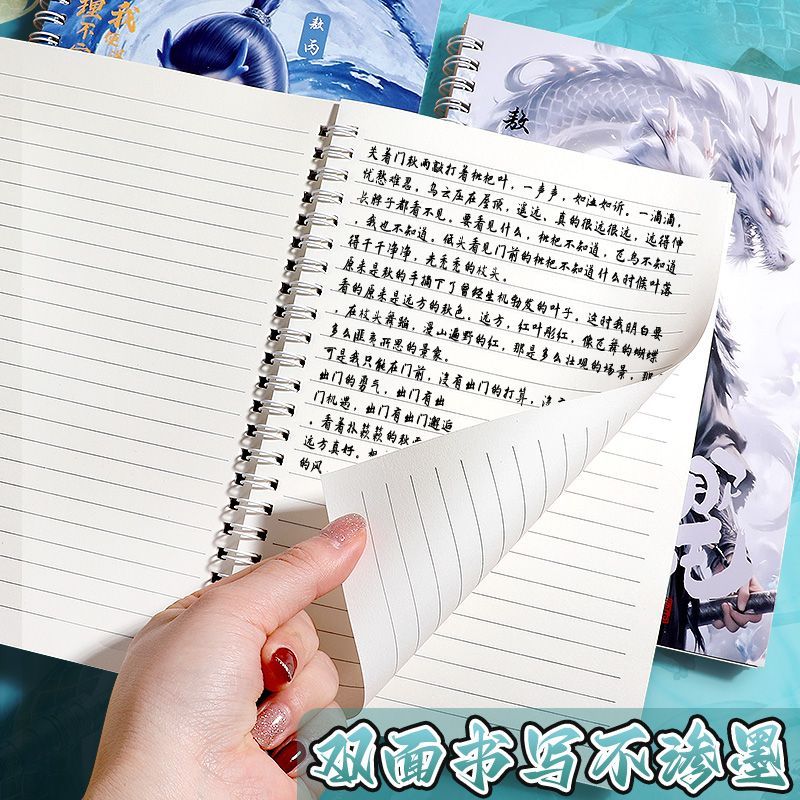 敖丙
敖
关着门秋雨敲打着枇杷叶，一声声，如泣如诉。一滴滴，
忧愁难忍。乌云压在屋顶，遥远，真的很远很远，远得伸
长脖子都看不见。要看见什么，枇杷不知道，飞鸟不知道
，我也不知道。低头看见门前的枇杷不知道什么时候叶落
得干干净净，光秃秃的枝头。
原来是秋的手摘下了曾经生机勃发的叶子。这时我明白要
看的原来是远方的秋色。远方，红叶彤红，像飞舞的蝴蝶
，在枝头舞蹈，漫山遍野的红，那是多么壮观的场景，那
多么匪夷所思的景象。
可是我只能在门前，没有出门的打算，没
出门的勇气，出门有出
门机遇，出门有出门邂逅
，看着扑簌簌的秋
远方真好。
的风
双面书写不渗墨